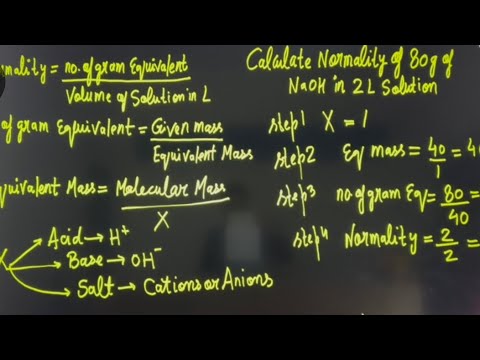 mality = no. of gram Equivalent
Volume of Solution in L
of gram Equivalent = Given mass
Equivalent Mass
quivalent Mass = Molecular Mass
X
Acid → H+
Base → OH-
Salt → Cations or Anions
Calculate Normality of 80g of
NaOH in 2L Solution
step1 X = 1
step2 Eq mass = 40/1 = 4
step3 no of gram Eq = 80/40 =
step4 Normality = 2/2 =